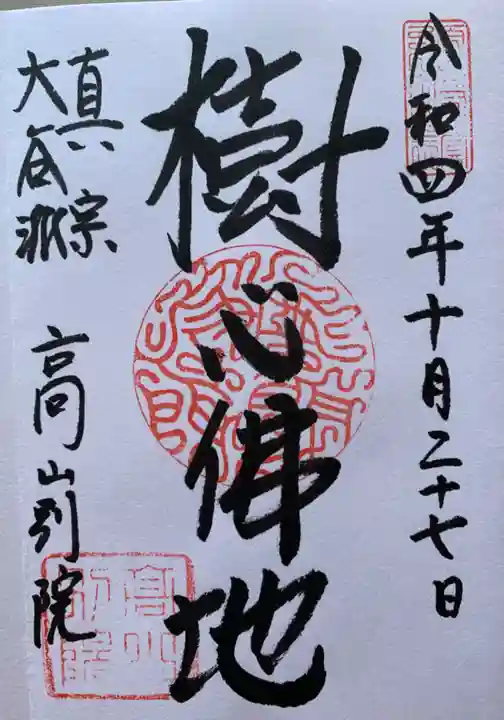 令和四年十月二十七日
樹心佛地
真宗
大谷派
高山別院